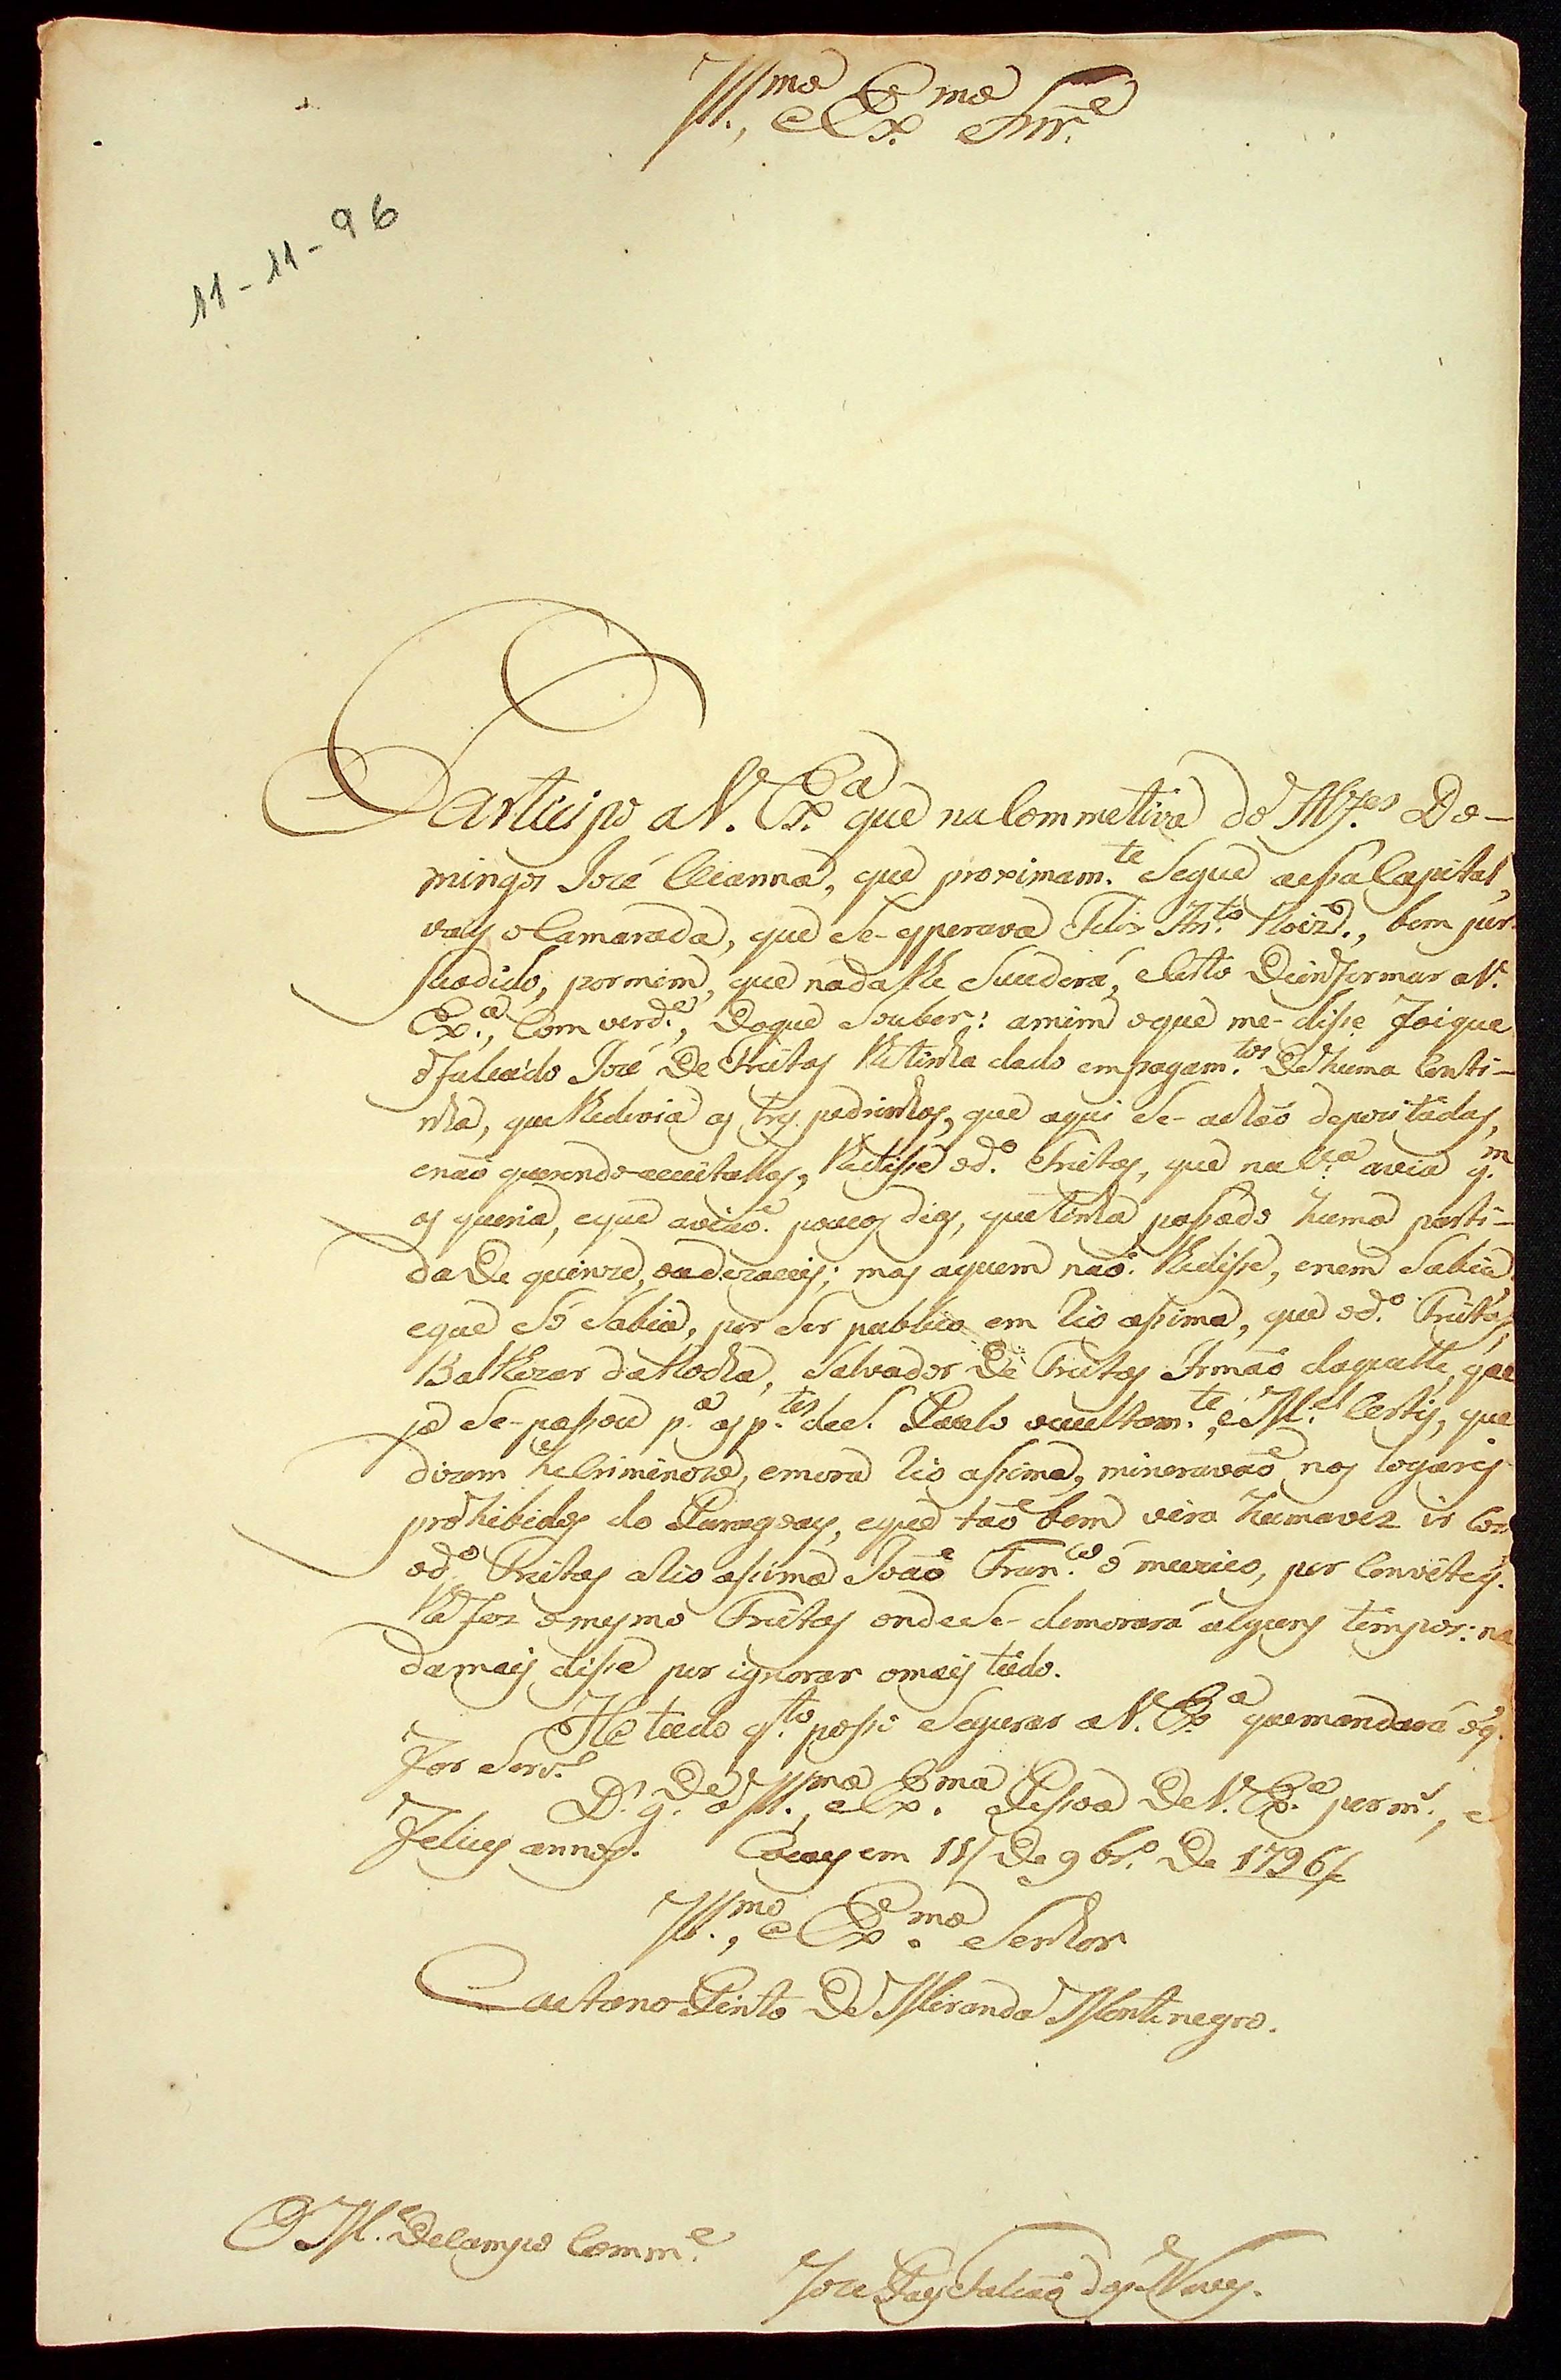 Ill.mo e Ex.mo Snr.e
11-11-96
Participo a V. Ex.a que na Commetiva do Alf.es Do-
mingos José Vianna, que proximam.te Segue aessa Capital,
vay o Camarada, que Se-esperava Felis An.to Roiz., bem per-
suadido, por mim, que nada lhe Sucederá, e Certo De informar a V.
Ex.a, Com verd.e, Do que Souber: amim o que me-disse foi que
o falecido José De Freitas lhe tinha dado em pagam.tos De huma Conti-
nha, que lhe devia as tres pedrinhas, que aqui Se-achão depozitadas,
e não querendo acceitallas, lhe disse o d.o Freitas, que na V.a avia q.m
as queria, e que avião poucos dias, que tinha passado huma parti-
da De quinze, ou dezaceis; mas aquem não lhe disse, e nem Sabia
e que Só Sabia, por Ser publico em Rio assima, que o d.o Freitas,
Balthezar da Rocha, Salvador De Freitas Irmão daquelle, que
já Se-passou p.a as p.tes de S. Paulo occultam.te, e M.el Certis, que
dizem he Criminozo, e mora Rio assima, mineravão nos logares
prohibidos do Paragoay, e que tão bem vira huma vez ir Com
o d.o Freitas a Rio assima João Fran.co o murico, por Convites
lhe fez o mesmo Freitas onde Se-demorará alguns tempos: na
da mais disse por ignorar o mais tudo.
He tudo q.to posso Segurar a V. Ex.a que mandará o q.
for Serv.o
D.s g.de a Ill.ma, e Ex.ma Pessoa De V. Ex.a por m.s, e
felices annos. Cuyaby em 11/ De 9br.o De 1796/
Ill.mo, e Ex.mo Senhor
Caetano Pinto De Miranda Montenegro.
O M.e De Campo Comm.e
Joze Paes Falcão das Neves.